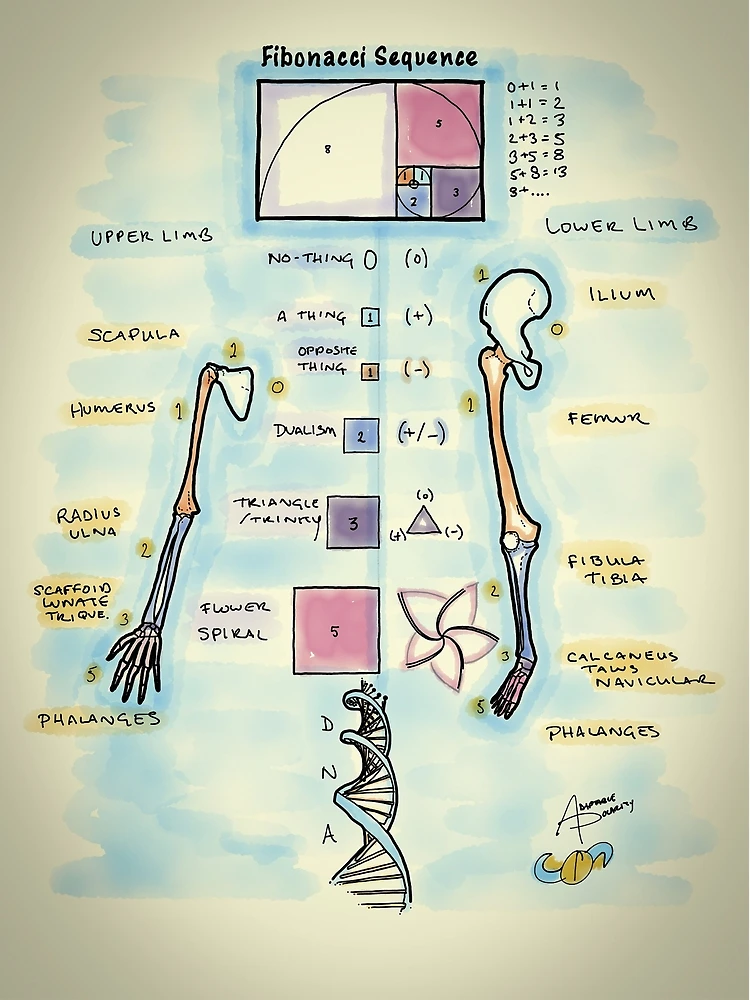 Fibonacci Sequence
0+1=1
1+1=2
1+2=3
2+3=5
3+5=8
5+8=13
8+....
8
5
1 1
2
3
UPPER LIMB
LOWER LIMB
NO-THING 0 (0)
A THING 1 (+)
OPPOSITE
THING 1 (-)
DUALISM 2 (+/-)
TRIANGLE
/TRINITY 3
(0)
(+) (-)
FLOWER
SPIRAL
5
D
N
A
SCAPULA
1
0
HUMERUS 1
RADIUS
ULNA
2
SCAFFOID
LUNATE
TRIQUE.
3
5
PHALANGES
1
ILIUM
0
1
FEMUR
FIBULA
TIBIA
2
CALCANEUS
TALUS
NAVICULAR
3
5
PHALANGES
ADORABLE
POLARITY